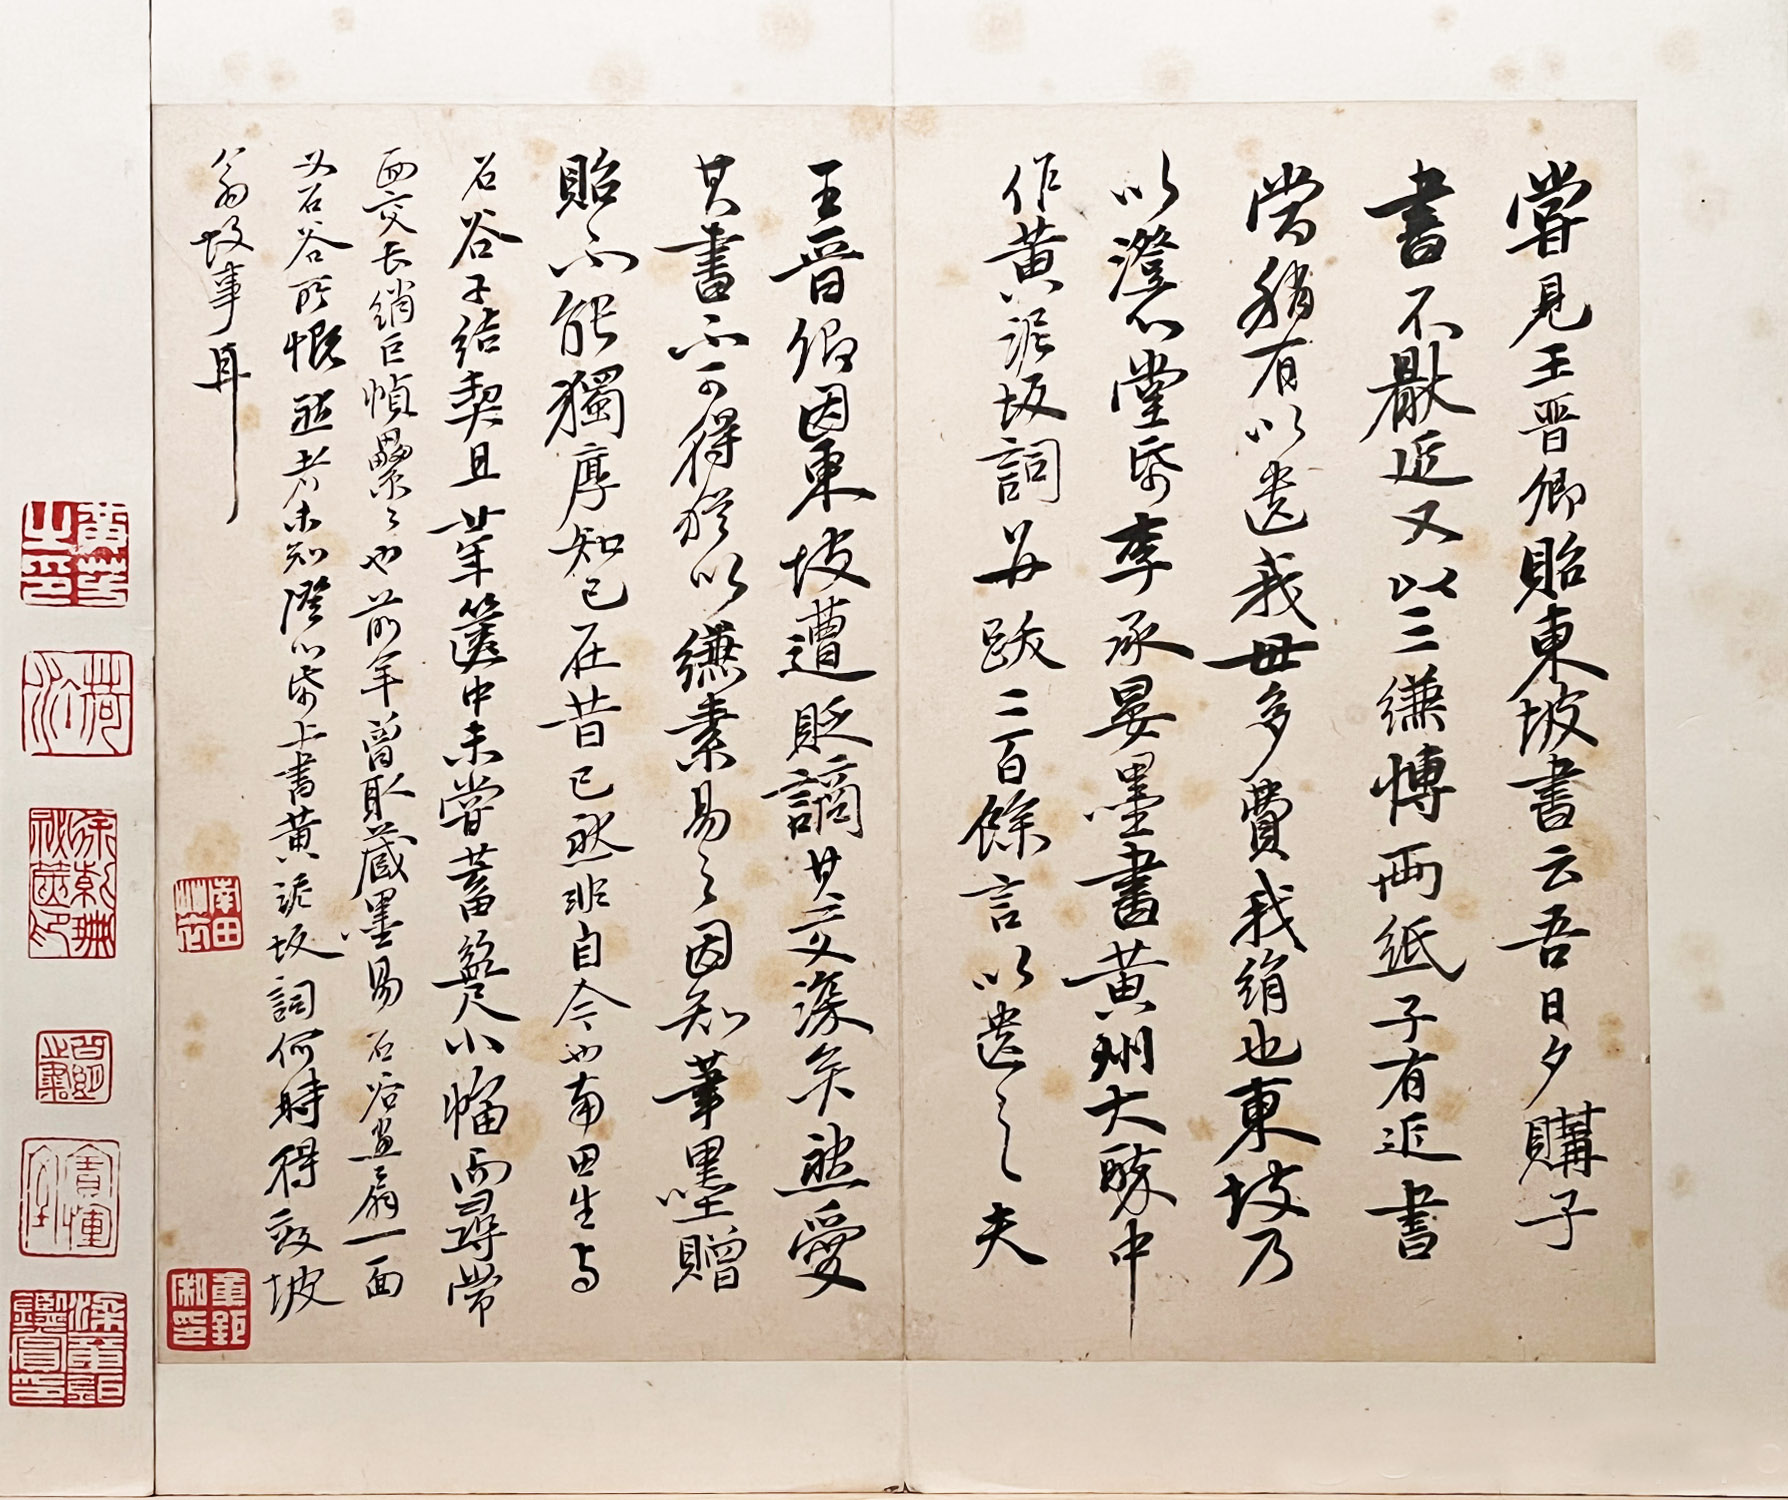 嘗見王晉卿貽東坡書云吾日夕購子
書不厭近又以三縑博兩紙子有近書
當稍有以遺我毋多費我絹也東坡乃
以澄心堂紙李承晏墨書黃州大醉中
作黃泥坂詞并跋二百餘言以遺之夫
王晉卿因東坡遭貶謫其交深矣然愛
其書不可得猶以縑素易之因知筆墨贈
貽不能獨厚知己在昔已然非自今也南田生与
石谷子結契且廿年篋中未嘗蓄盈尺小幅而尋常
面交長綃巨幀纍纍也前年曾取藏墨易石谷畫扇一面
又石谷所慨然者未知澄心紙上書黃泥坂詞何時得效坡
翁故事耳
南田
黃芳之印
荷汀